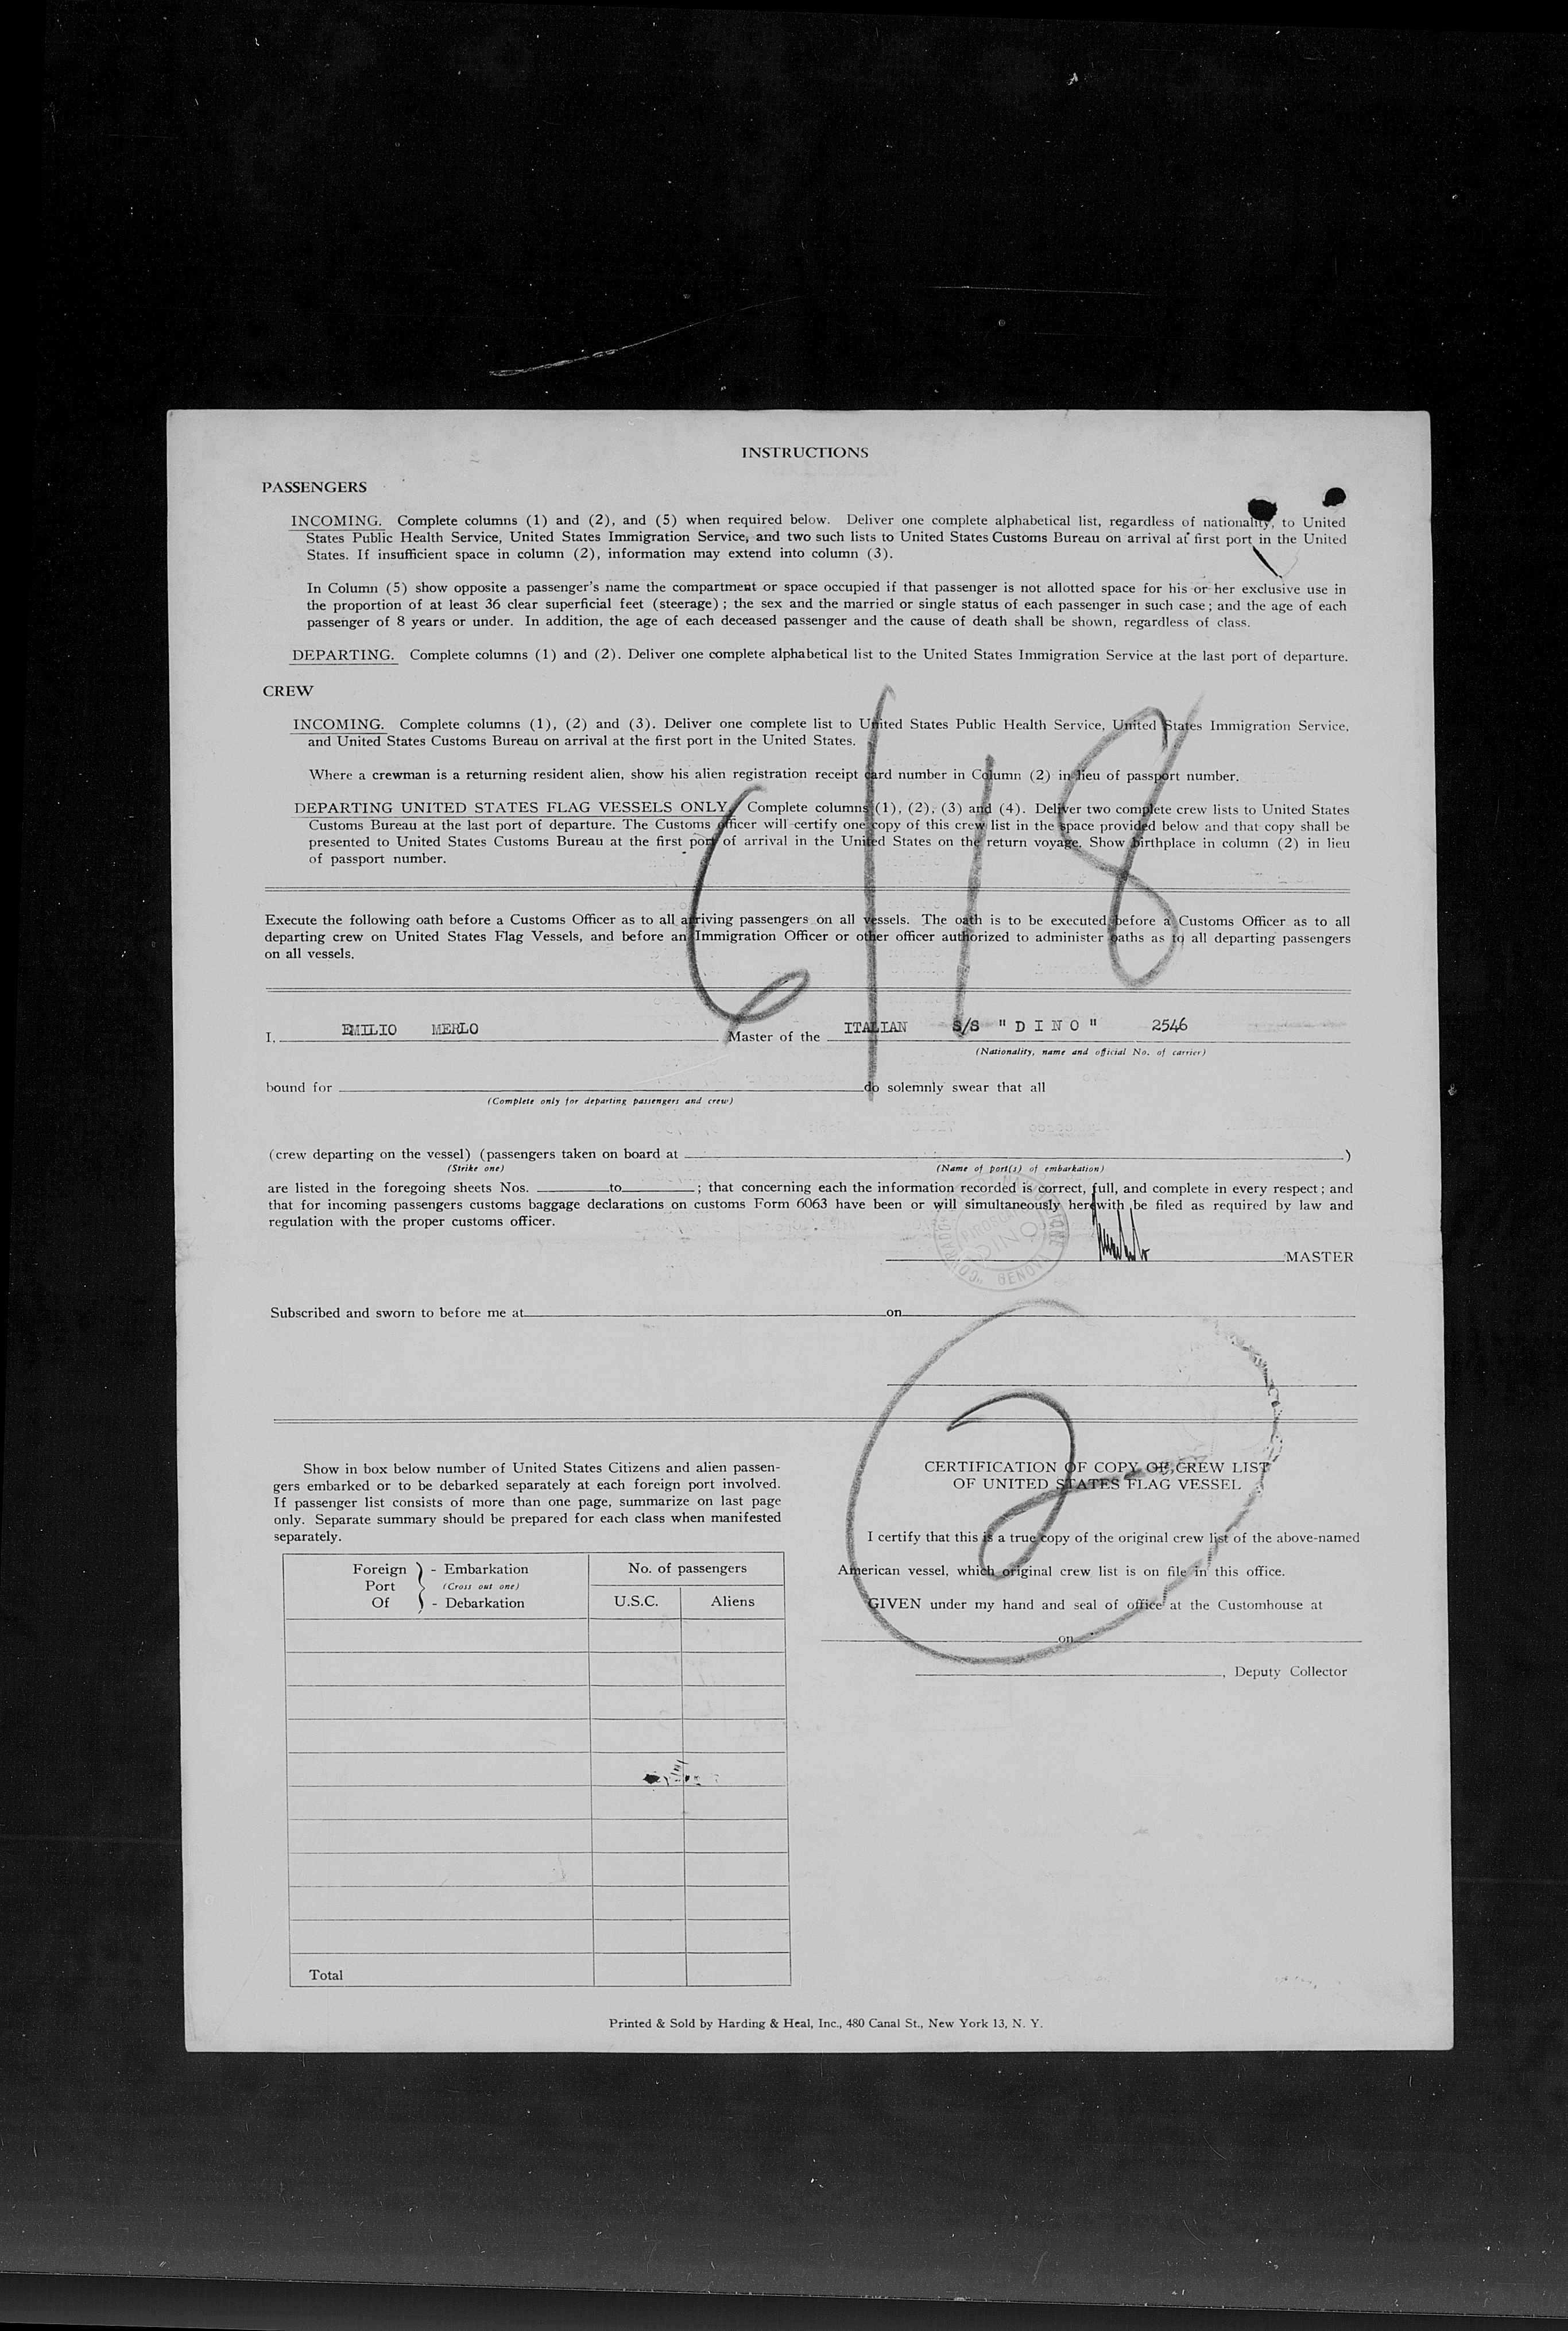 INSTRUCTIONS
PASSENGERS
INCOMING. Complete columns (1) and (2), and (5) when required below. Deliver one complete alphabetical list, regardless of nationality, to United
States Public Health Service, United States Immigration Service, and two such lists to United States Customs Bureau on arrival at first port in the United
States. If insufficient space in column (2), information may extend into column (3).
In Column (5) show opposite a passenger's name the compartment or space occupied if that passenger is not allotted space for his or her exclusive use in
the proportion of at least 36 clear superficial feet (steerage); the sex and the married or single status of each passenger in such case; and the age of each
passenger of 8 years or under. In addition, the age of each deceased passenger and the cause of death shall be shown, regardless of class.
DEPARTING. Complete columns (1) and (2). Deliver one complete alphabetical list to the United States Immigration Service at the last port of departure.
CREW
INCOMING. Complete columns (1), (2) and (3). Deliver one complete list to United States Public Health Service, United States Immigration Service,
and United States Customs Bureau on arrival at the first port in the United States.
Where a crewman is a returning resident alien, show his alien registration receipt card number in Column (2) in lieu of passport number.
DEPARTING UNITED STATES FLAG VESSELS ONLY. Complete columns (1), (2), (3) and (4). Deliver two complete crew lists to United States
Customs Bureau at the last port of departure. The Customs officer will certify one copy of this crew list in the space provided below and that copy shall be
presented to United States Customs Bureau at the first port of arrival in the United States on the return voyage. Show birthplace in column (2) in lieu
of passport number.
6/18
Execute the following oath before a Customs Officer as to all arriving passengers on all vessels. The oath is to be executed before a Customs Officer as to all
departing crew on United States Flag Vessels, and before an Immigration Officer or other officer authorized to administer oaths as to all departing passengers
on all vessels.
I, EMILIO MERLO Master of the ITALIAN S/S "DINO" 2546
(Nationality, name and official No. of carrier)
bound for do solemnly swear that all
(Complete only for departing passengers and crew)
(crew departing on the vessel) (passengers taken on board at )
(Strike one) (Name of port(s) of embarkation)
are listed in the foregoing sheets Nos. to ; that concerning each the information recorded is correct, full, and complete in every respect; and
that for incoming passengers customs baggage declarations on customs Form 6063 have been or will simultaneously herewith be filed as required by law and
regulation with the proper customs officer.
DINO
GENOVA
MASTER
Subscribed and sworn to before me at on
2
Show in box below number of United States Citizens and alien passen-
gers embarked or to be debarked separately at each foreign port involved.
If passenger list consists of more than one page, summarize on last page
only. Separate summary should be prepared for each class when manifested
separately.
Foreign Port Of } - Embarkation
(Cross out one)
- Debarkation
No. of passengers
U.S.C. Aliens
Total
CERTIFICATION OF COPY OF CREW LIST
OF UNITED STATES FLAG VESSEL
I certify that this is a true copy of the original crew list of the above-named
American vessel, which original crew list is on file in this office.
GIVEN under my hand and seal of office at the Customhouse at
on
, Deputy Collector
Printed & Sold by Harding & Heal, Inc., 480 Canal St., New York 13, N. Y.